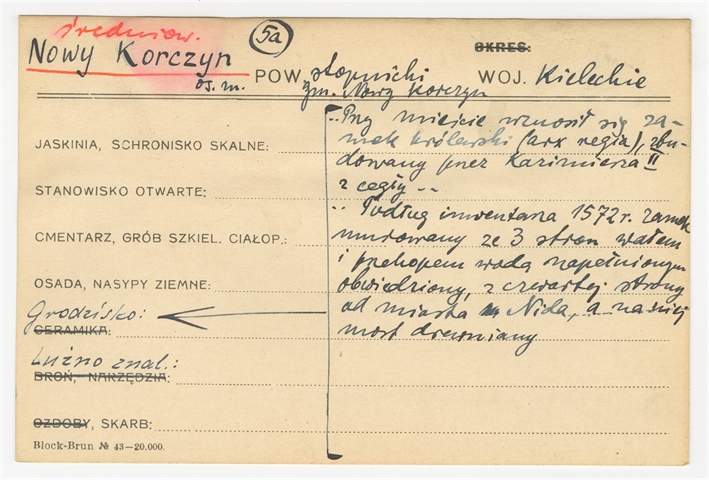 średniow.
Nowy Korczyn
os. m.
5a
POW. stopnicki
gm. Nowy Korczyn
OKRES:
WOJ. Kieleckie
JASKINIA, SCHRONISKO SKALNE:
STANOWISKO OTWARTE:
CMENTARZ, GRÓB SZKIEL. CIAŁOP.:
OSADA, NASYPY ZIEMNE:
Grodzisko:
CERAMIKA:
Luźno znal.:
BROŃ, NARZĘDZIA:
OZDOBY, SKARB:
Block-Brun № 43—20.000.
.. Przy mieście wznosił się za-
mek królewski (arx regia), zbu-
dowany przez Kazimierza II
z cegły --
.. Podług inwentarza 1572 r. zamek
murowany ze 3 stron wałem
i przekopem wodą napełnionym
obwiedziony, z czwartej strony
od miasta Nida, a na niej
most drewniany